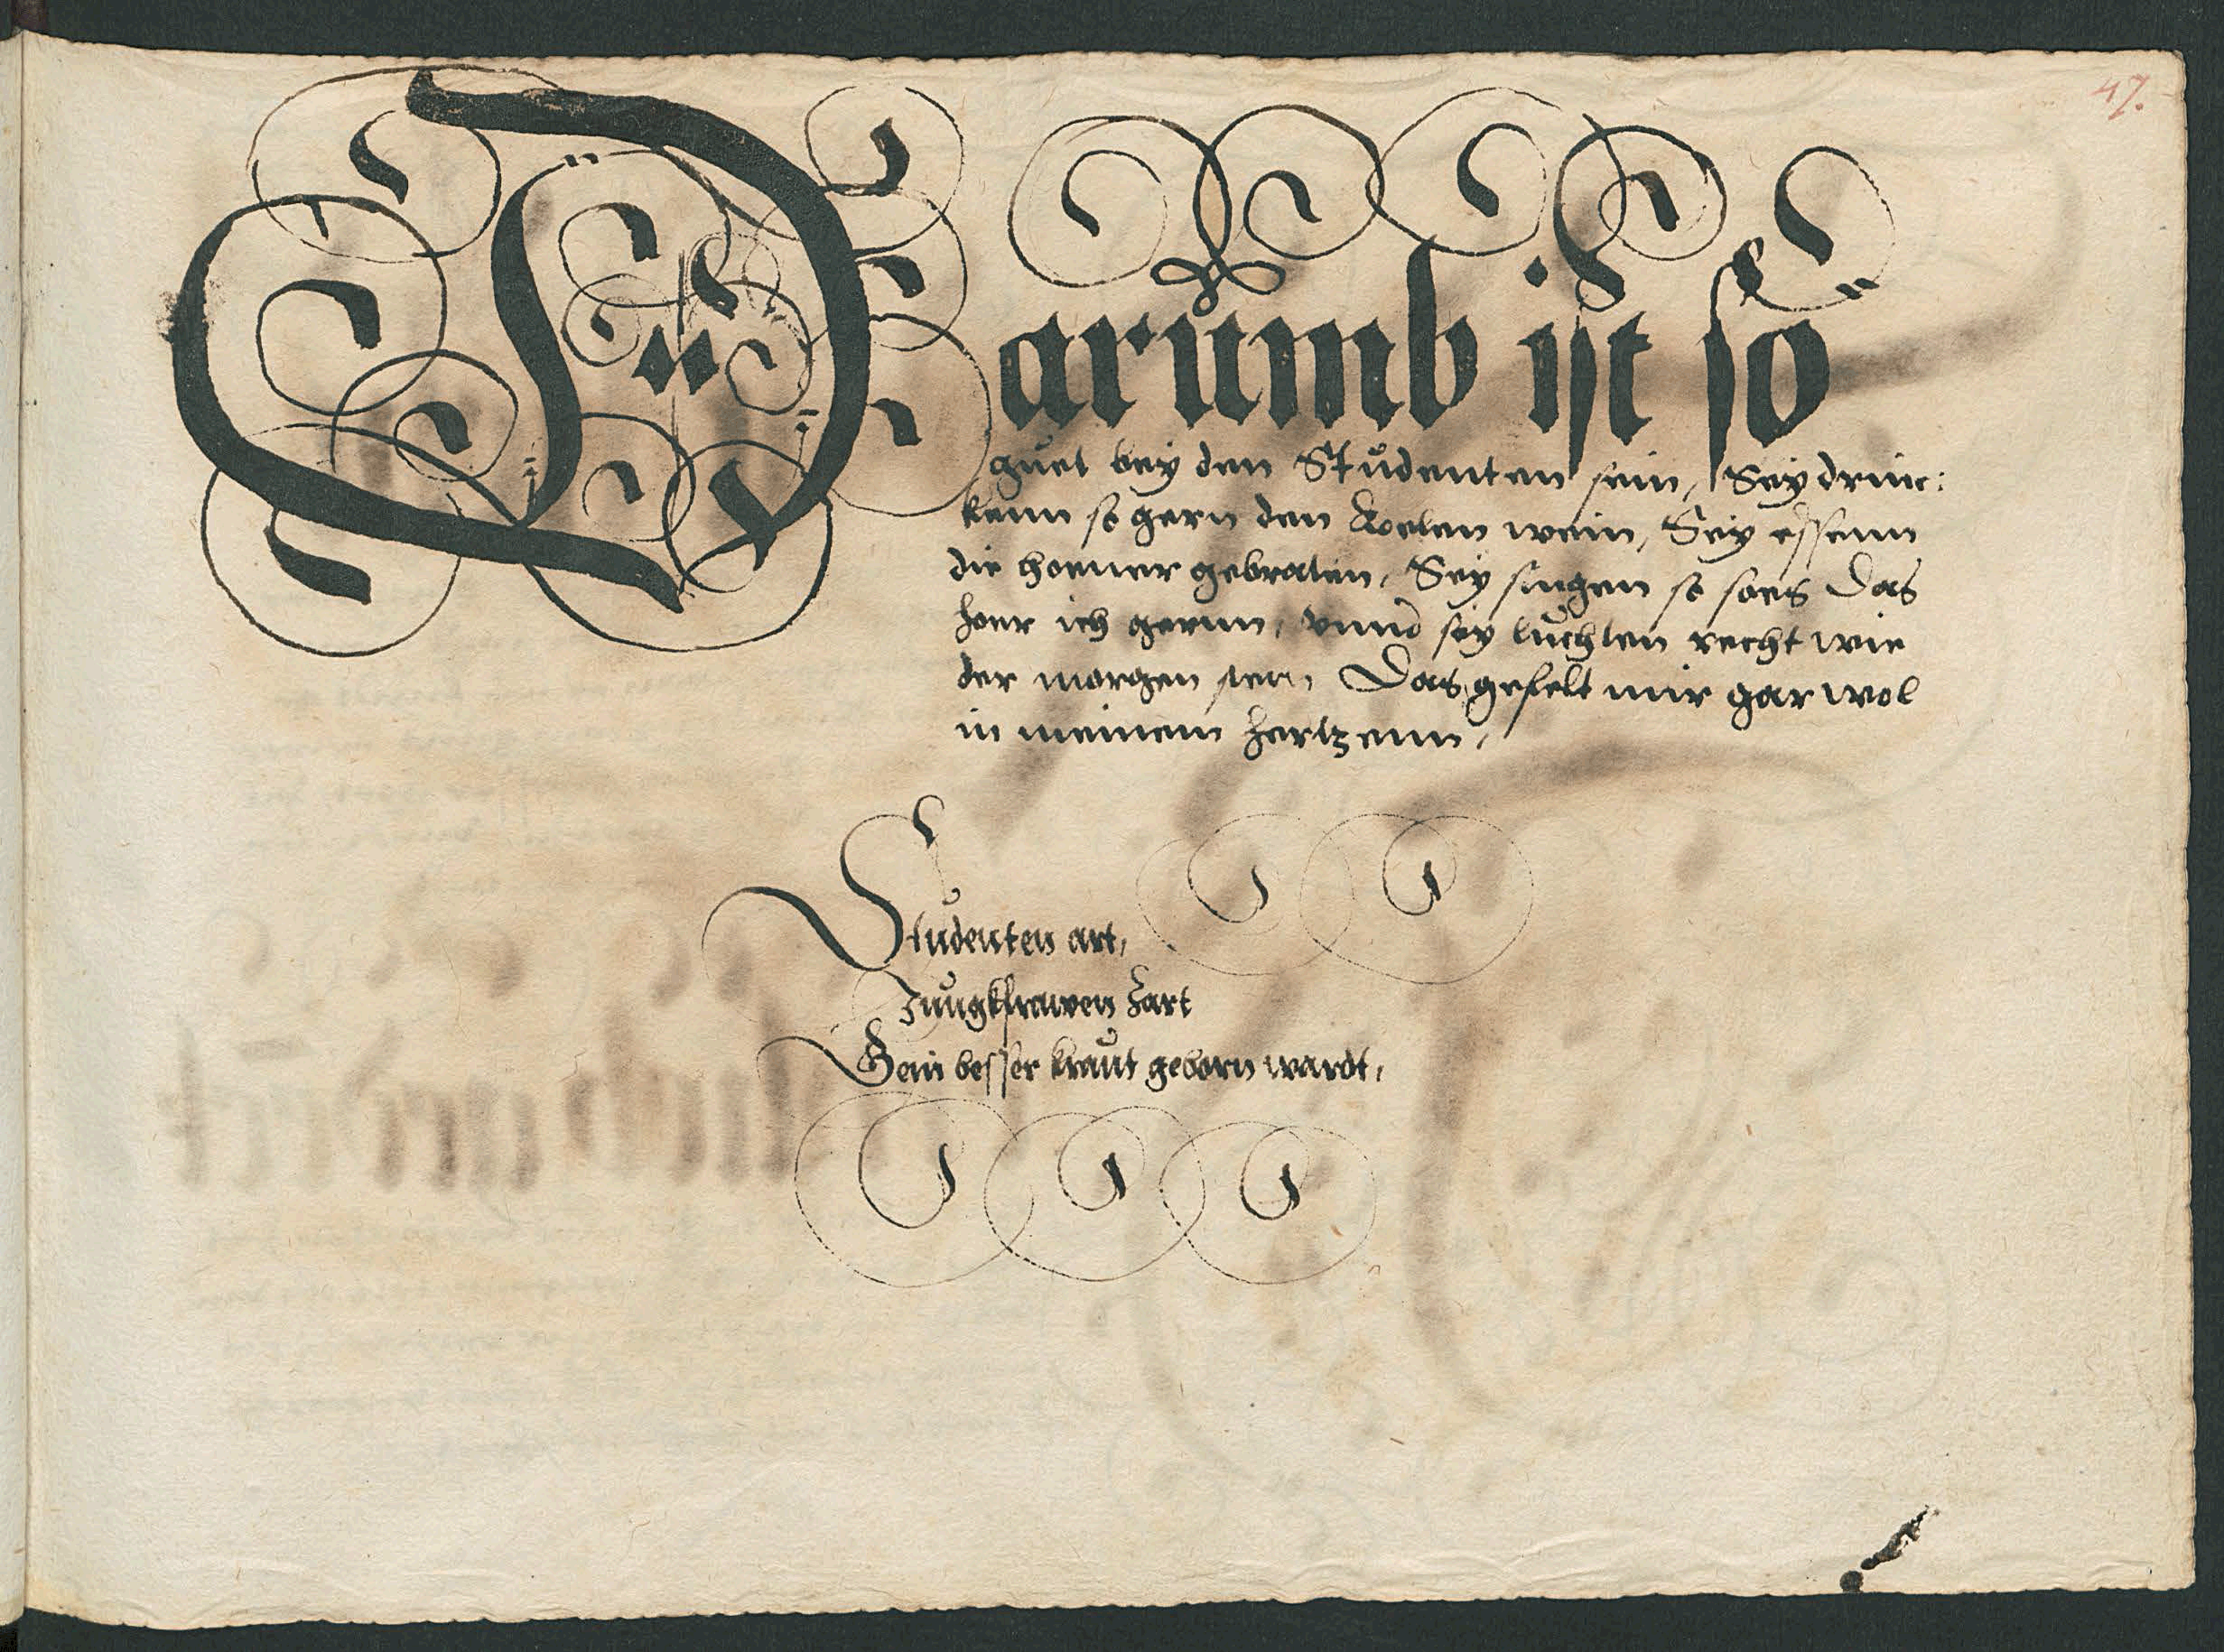 47.
Darumb ist so
guet bey den Studenten sein, Sey drinc:
kenn so gern den koelen wein, Sey essenn
die hoener gebraten, Sey singen so soes Das
hoer ich gernn, vnnd sey luchten recht wie
der morgen stern, Das gefelt mir gar wol
in meinem hertzenn,
Studenten art,
Jungkfrawen zart
besser kraut geborn wardt,